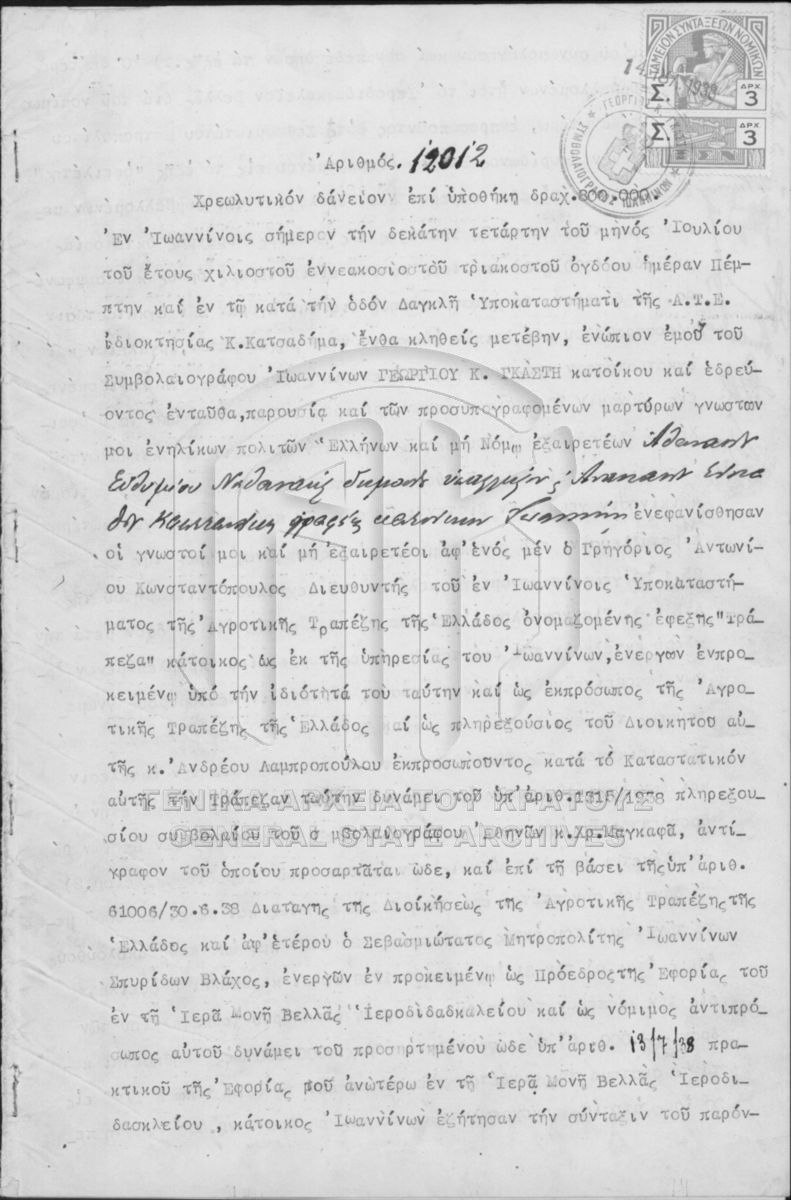 ΤΑΜΕΙΟΝ ΣΥΝΤΑΞΕΩΝ ΝΟΜΙΚΩΝ
Σ. ΔΡΧ 3
Σ. ΔΡΧ 3
Ἀριθμός. 12012
Χρεωλυτικόν δάνειον ἐπί ὑποθήκη δραχ.800.000.
Ἐν Ἰωαννίνοις σήμερον τήν δεκάτην τετάρτην τοῦ μηνός Ἰουλίου
τοῦ ἔτους χιλιοστοῦ ἐννεακοσιοστοῦ τριακοστοῦ ὀγδόου ἡμέραν Πέμ-
πτην καί ἐν τῷ κατά τήν ὁδόν Δαγκλῆ Ὑποκαταστήματι τῆς Α.Τ.Ε.
ἰδιοκτησίας Κ.Κατσαδήμα, ἔνθα κληθείς μετέβην, ἐνώπιον ἐμοῦ τοῦ
Συμβολαιογράφου Ἰωαννίνων ΓΕΩΡΓΙΟΥ Κ. ΓΚΑΣΤΗ κατοίκου καί ἑδρεύ-
οντος ἐνταῦθα,παρουσίᾳ καί τῶν προσυπογραφομένων μαρτύρων γνωστῶν
μοι ἐνηλίκων πολιτῶν Ἑλλήνων καί μή Νόμῳ ἐξαιρετέων
Εὐθυμίου
ἐνεφανίσθησαν
οἱ γνωστοί μοι καί μή ἐξαιρετέοι ἀφ'ἑνός μέν ὁ Γρηγόριος Ἀντωνί-
ου Κωνσταντόπουλος Διευθυντής τοῦ ἐν Ἰωαννίνοις Ὑποκαταστή-
ματος τῆς Ἀγροτικῆς Τραπέζης τῆς Ἑλλάδος ὀνομαζομένης ἐφεξῆς "Τρά-
πεζα" κάτοικος ὡς ἐκ τῆς ὑπηρεσίας του Ἰωαννίνων,ἐνεργῶν ἐνπρο-
κειμένῳ ὑπό τήν ἰδιότητά του ταύτην καί ὡς ἐκπρόσωπος τῆς Ἀγρο-
τικῆς Τραπέζης τῆς Ἑλλάδος καί ὡς πληρεξούσιος τοῦ Διοικητοῦ αὐ-
τῆς κ. Ἀνδρέου Λαμπροπούλου ἐκπροσωποῦντος κατά τό Καταστατικόν
αὐτῆς τήν Τράπεζαν ταύτην δυνάμει τοῦ ὑπ'ἀριθ.1315/1938 πληρεξου-
ΓΕΝΙΚΑ ΑΡΧΕΙΑ ΤΟΥ ΚΡΑΤΟΥΣ
σίου συ βολαίου τοῦ σ μβολαιογράφου Ἀθηνῶν κ.Χρ.Μαγκαφᾶ, ἀντί-
GENERAL STATE ARCHIVES
γραφον τοῦ ὁποίου προσαρτᾶται ὧδε, καί ἐπί τῇ βάσει τῆς ὑπ'ἀριθ.
61006/30.6.38 Διαταγῆς τῆς Διοικήσεως τῆς Ἀγροτικῆς Τραπέζης τῆς
Ἑλλάδος καί ἀφ'ἑτέρου ὁ Σεβασμιώτατος Μητροπολίτης Ἰωαννίνων
Σπυρίδων Βλάχος, ἐνεργῶν ἐν προκειμένῳ ὡς Πρόεδρος τῆς Ἐφορίας τοῦ
ἐν τῇ Ἱερᾷ Μονῇ Βελλᾶς Ἱεροδιδαδκαλείου καί ὡς νόμιμος ἀντιπρό-
σωπος αὐτοῦ δυνάμει τοῦ προσηρτημένου ὧδε ὑπ'ἀριθ. 13/7/38 πρα-
κτικοῦ τῆς Ἐφορίας τοῦ ἀνωτέρω ἐν τῇ Ἱερᾷ Μονῇ Βελλᾶς Ἱεροδι-
δασκλείου , κάτοικος Ἰωαννίνων ἐζήτησαν τήν σύνταξιν τοῦ παρόν-